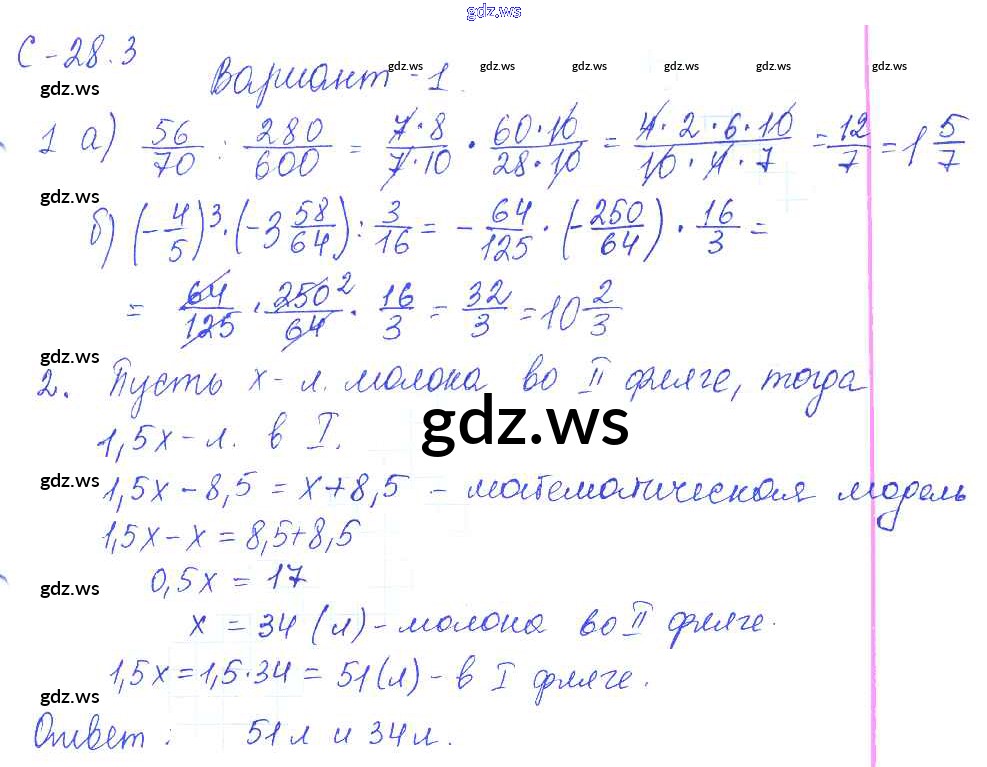 gdz.ws
С-28.3
gdz.ws gdz.ws gdz.ws gdz.ws gdz.ws gdz.ws
gdz.ws
Вариант-1.
1 а) 56/70 : 280/600 = 7·8/7·10 · 60·10/28·10 = 4·2·6·10/10·4·7 = 12/7 = 1 5/7
gdz.ws
б) (-4/5)³·(-3 58/64) : 3/16 = -64/125 · (-250/64) · 16/3 =
= 64/125 · 250²/64 · 16/3 = 32/3 = 10 2/3
gdz.ws
2. Пусть х-л. молока во II фляге, тогда
gdz.ws
1,5х-л. в I.
gdz.ws
1,5х-8,5 = х+8,5 - математическая модель
1,5х-х = 8,5+8,5
0,5х = 17
gdz.ws
х = 34 (л)-молока во II фляге.
1,5х = 1,5·34 = 51(л)-в I фляге.
gdz.ws
Ответ: 51л и 34л.